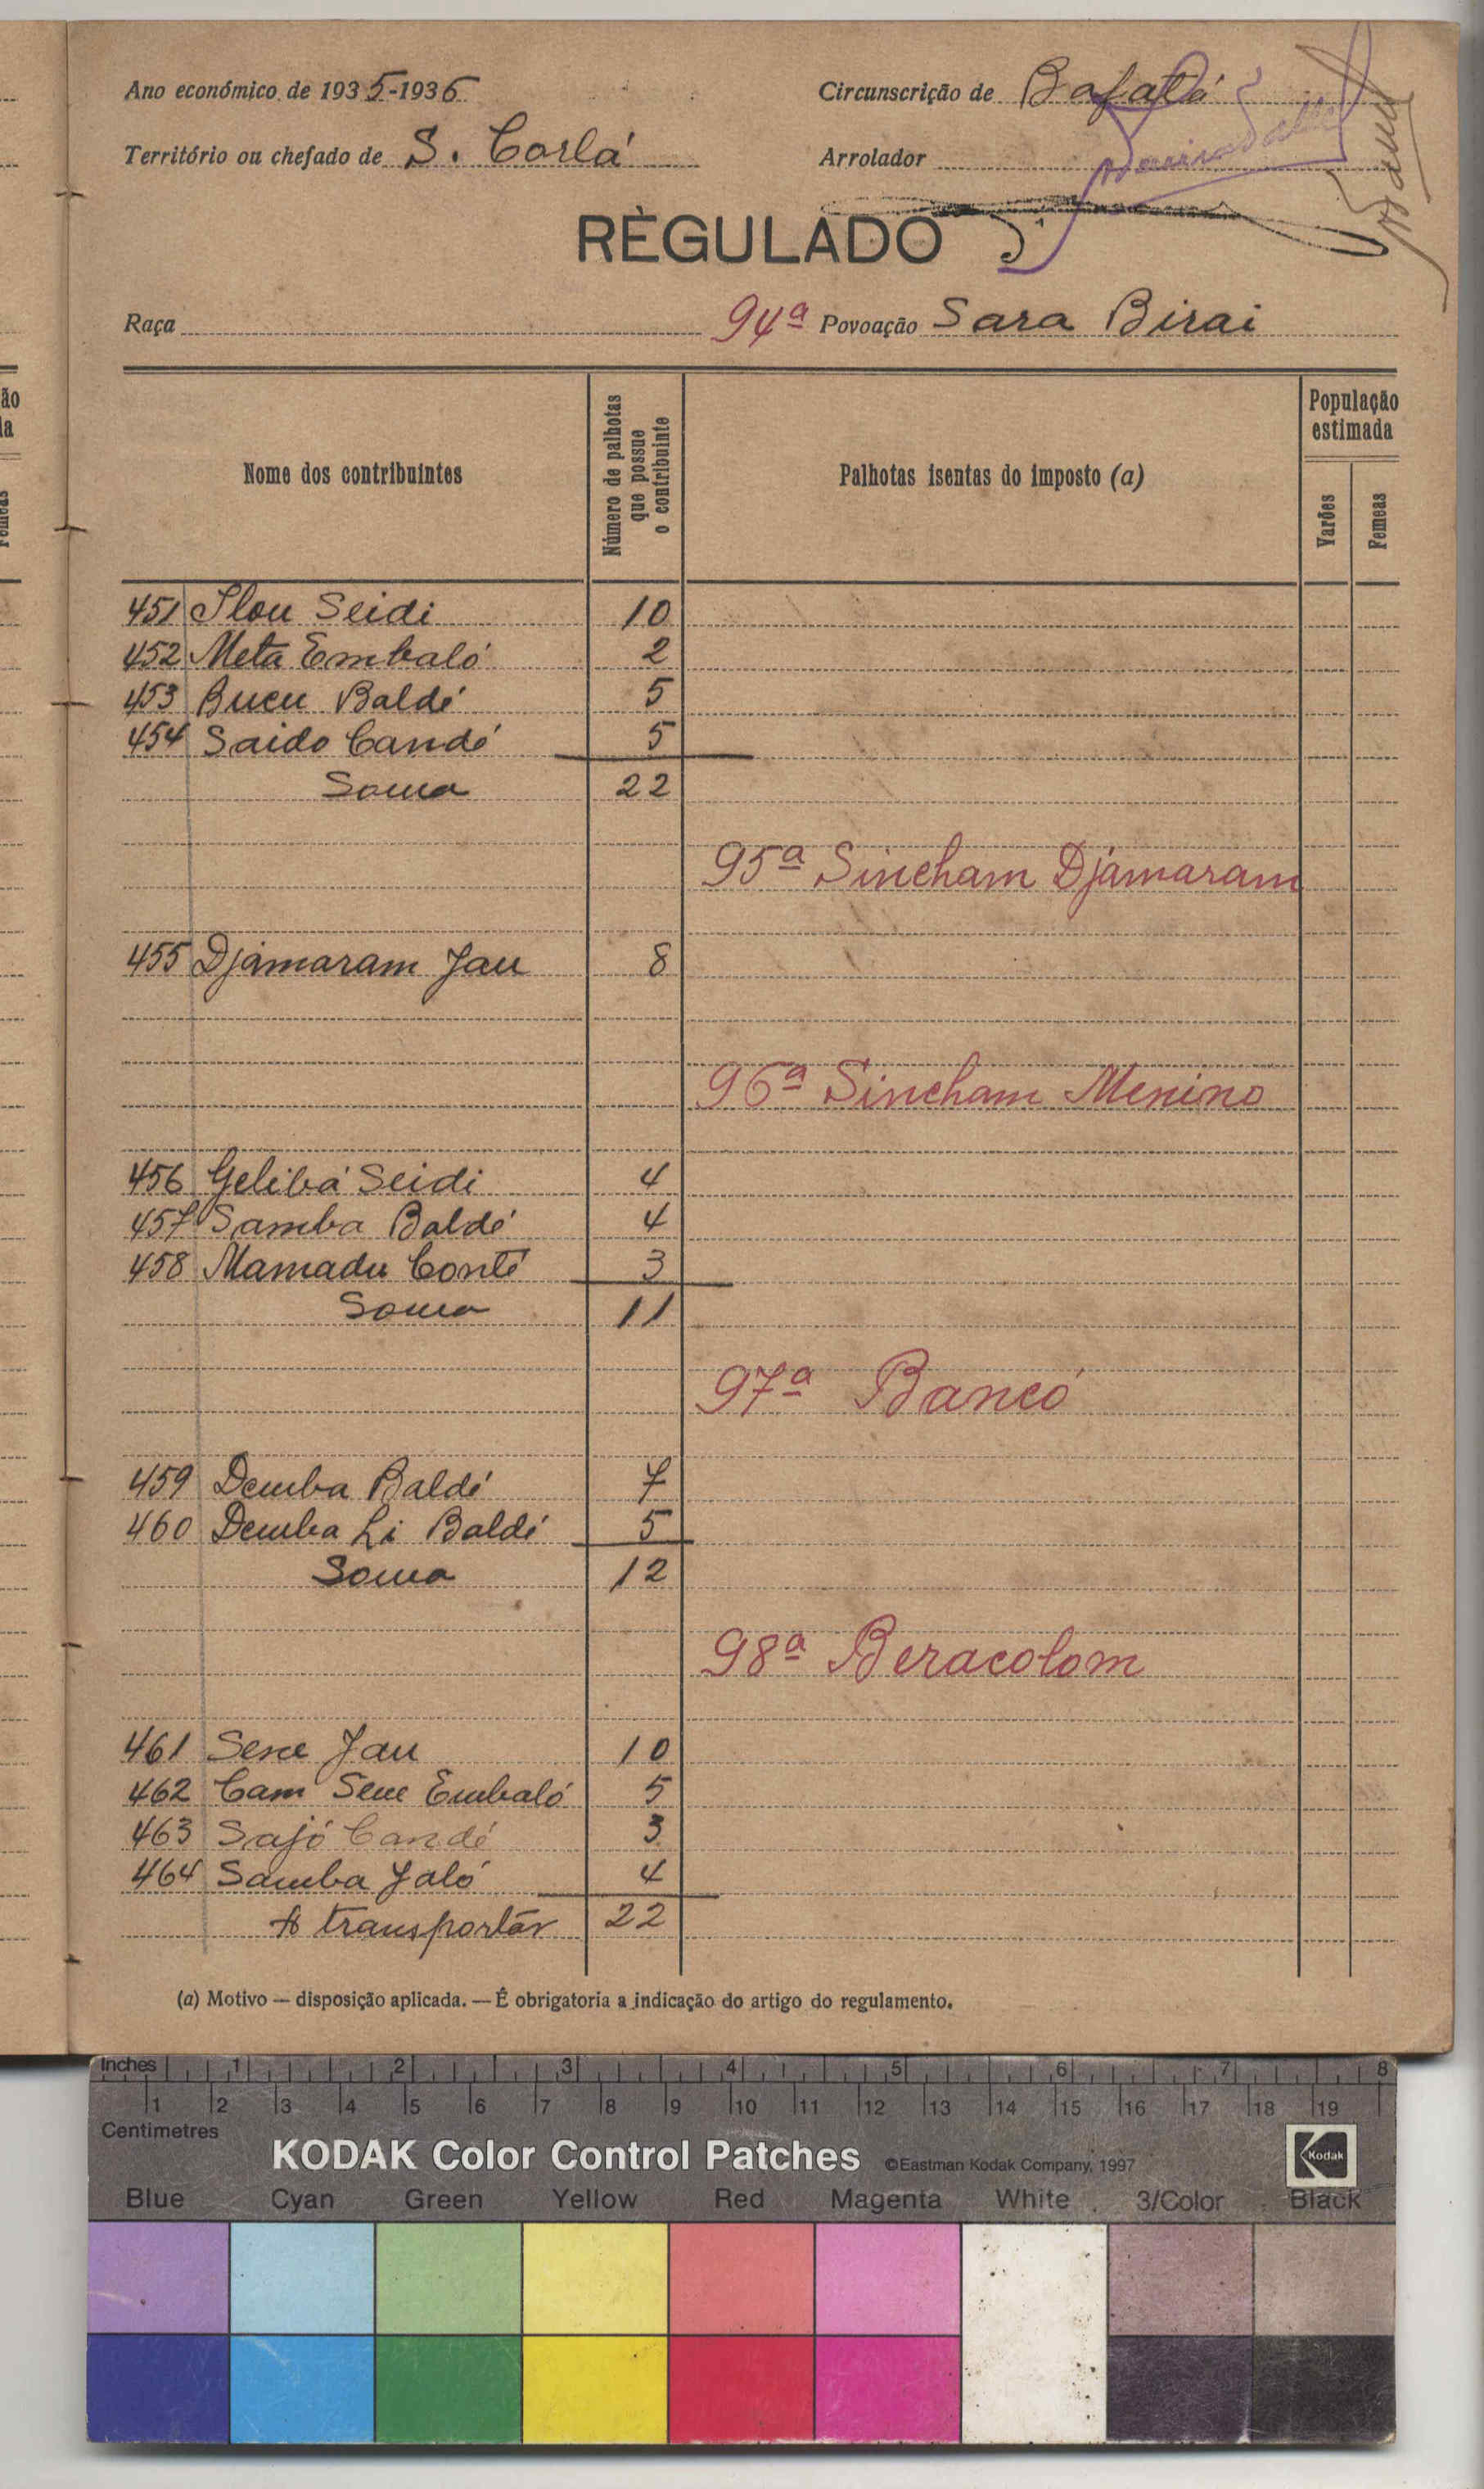 Ano económico de 1935-1936
Circunscrição de Bafatá
Território ou chefado de S. Corlá
Arrolador
RÈGULADO
Raça
94ª Povoação Sara Birai
Nome dos contribuintes
Número de palhotas que possue o contribuinte
Palhotas isentas do imposto (a)
População estimada
Varões
Femeas
451 Ilou Seidi 10
452 Meta Embaló 2
453 Bucu Baldé 5
454 Saido Candé 5
Soma 22
95ª Sincham Djámaram
455 Djámaram Jau 8
96ª Sincham Menino
456 Gelibá Seidi 4
457 Samba Baldé 4
458 Mamadu Conté 3
Soma 11
97ª Bancó
459 Demba Baldé 7
460 Demba Li Baldé 5
Soma 12
98ª Beracolom
461 Sene Jau 10
462 Cam Sene Embaló 5
463 Sajó Candé 3
464 Samba Jaló 4
A transportár 22
(a) Motivo — disposição aplicada. — É obrigatoria a indicação do artigo do regulamento.
Inches 1 2 3 4 5 6 7 8
1 2 3 4 5 6 7 8 9 10 11 12 13 14 15 16 17 18 19
Centimetres
KODAK Color Control Patches ©Eastman Kodak Company, 1997
Kodak
Blue Cyan Green Yellow Red Magenta White 3/Color Black